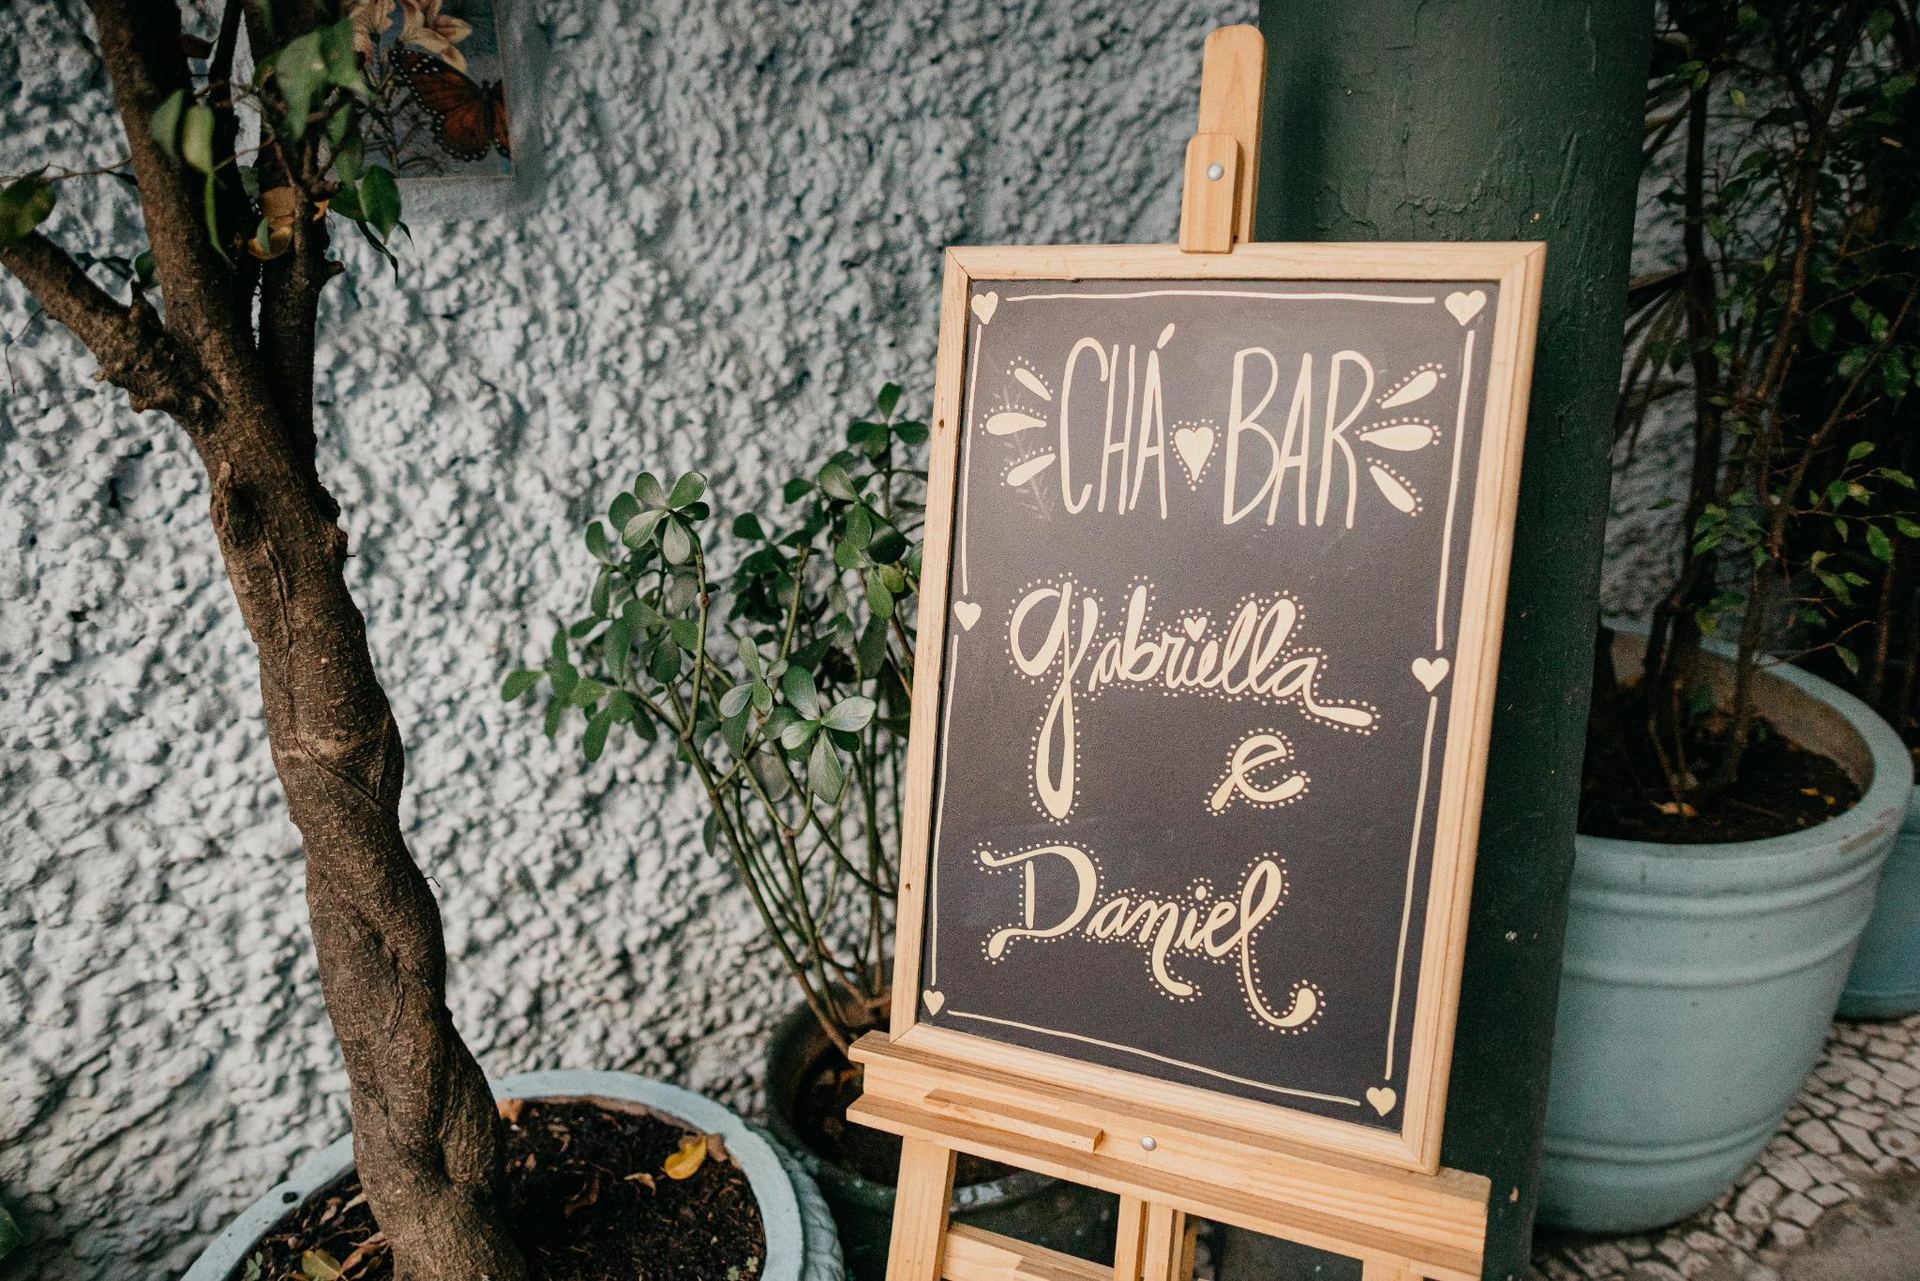 CHÁ BAR
Gabriella
e
Daniel